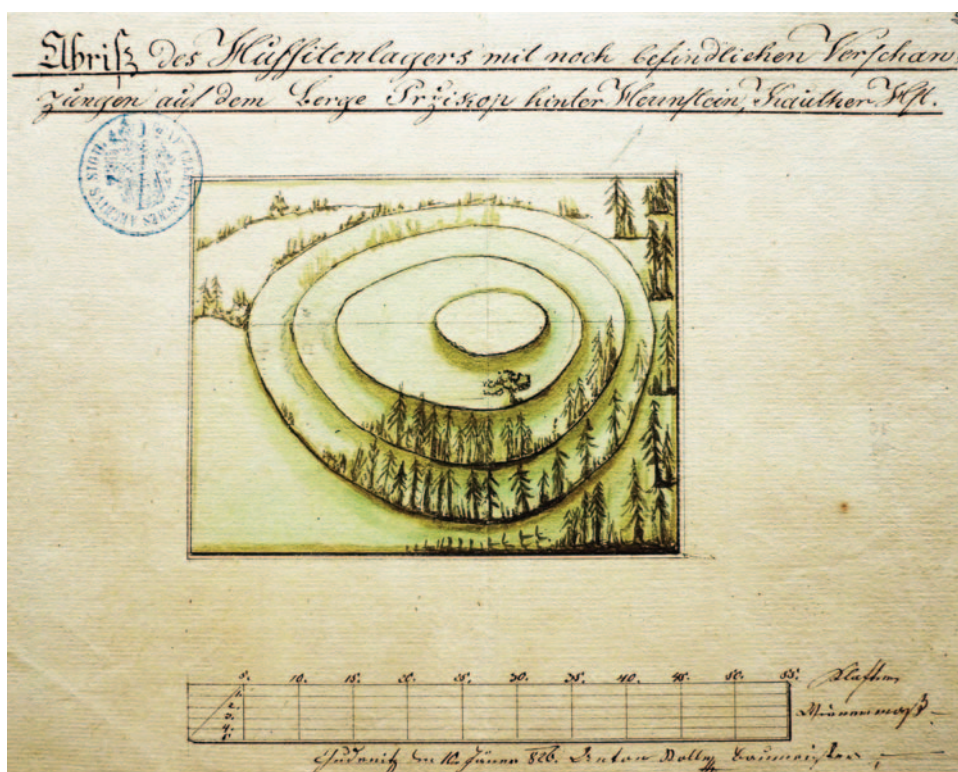 Abriß des Hussitenlagers mit noch befindlichen Verschan
zungen auf dem Berge Przikop hinter Hernstein, Kauther Hft.
5. 10. 15. 20. 25. 30. 35. 40. 45. 50. 55. Klafter
1.
2. Wienermaß
3.
4.
5
Chudenitz den 10. Jäner 826. Anton Baumeister